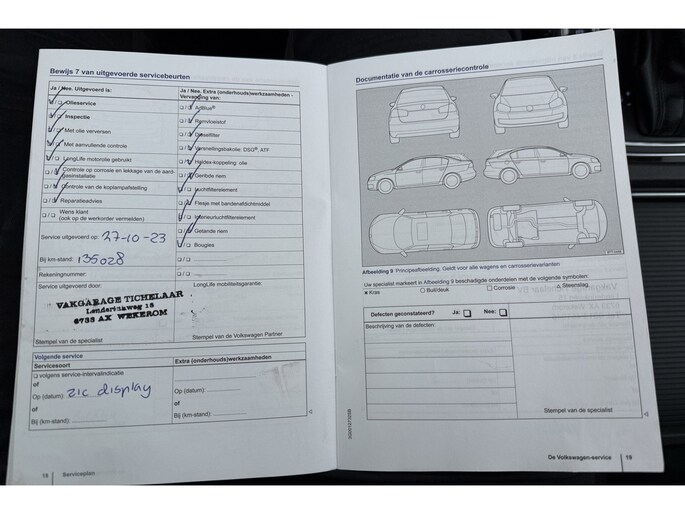 Bewijs 7 van uitgevoerde servicebeurten
Ja / Nee. Uitgevoerd is:
Olieservice
Inspectie
Met olie verversen
Met aanvullende controle
LongLife motorolie gebruikt
Controle op corrosie en lekkage van de aard-
gasinstallatie
Controle van de koplampafstelling
Reparatieadvies
Wens klant
(ook op de werkorder vermelden)
Service uitgevoerd op: 27-10-23
Bij km-stand: 135028
Rekeningnummer:
Service uitgevoerd door:
VAKGARAGE TICHELAAR
Lunterseweg 18
6733 AX WEKEROM
Stempel van de specialist
Ja / Nee. Extra (onderhouds)werkzaamheden -
Vervanging van:
AdBlue®
Remvloeistof
Dieselfilter
Versnellingsbakolie: DSG®, ATF
Haldex-koppeling: olie
Geribde riem
Luchtfilterelement
Flesje met bandenafdichtmiddel
Interieurluchtfilterelement
Getande riem
Bougies
LongLife mobiliteitsgarantie:
Stempel van de Volkswagen Partner
Volgende service
Servicesoort
volgens service-intervalindicatie
of
Op (datum): zie display
of
Bij (km-stand):
Extra (onderhouds)werkzaamheden
Op (datum):
of
Bij (km-stand):
18 Serviceplan
Documentatie van de carrosseriecontrole
Afbeelding 9 Principeafbeelding. Geldt voor alle wagens en carrosserievarianten
Uw specialist markeert in Afbeelding 9 beschadigde onderdelen met de volgende symbolen:
× Kras ○ Buil/deuk □ Corrosie △ Steenslag
Defecten geconstateerd? Ja: Nee:
Beschrijving van de defecten:
Stempel van de specialist
De Volkswagen-service 19